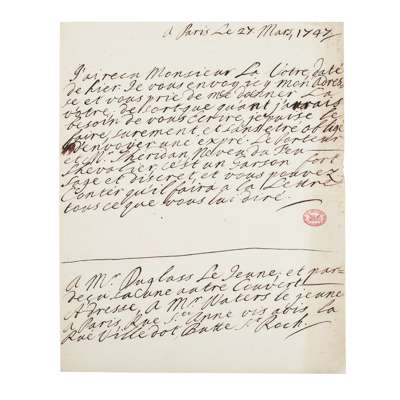 A Paris Le 27 Mars, 1747
J'ai reeu Monsieur La Votre, daté
de hier. Je vous envoy icy mon Adres,
se et vous prie de me donner La
votre, de sorte que quant j'aurais
besoin de vous Ecrire, je puise le
faire, surement, et sans etre oblige
d'envoyer une expre. Le Porteur
est Mr. Sheridan Neveu du Feu
Chevalier, c'est un Garson fort
Sage et discret, et vous pouvez
Conter qu'il faira a la Lettre
tous ce que vous lui diré.
A Mr. Duglass Le Jeune, et par-
dessu La Cune autre Couvert
Adresse, A Mr. Waters le jeune
A Paris, Rue Ste. Anne vis avis la
Rue Ville dot Butte St. Roch.